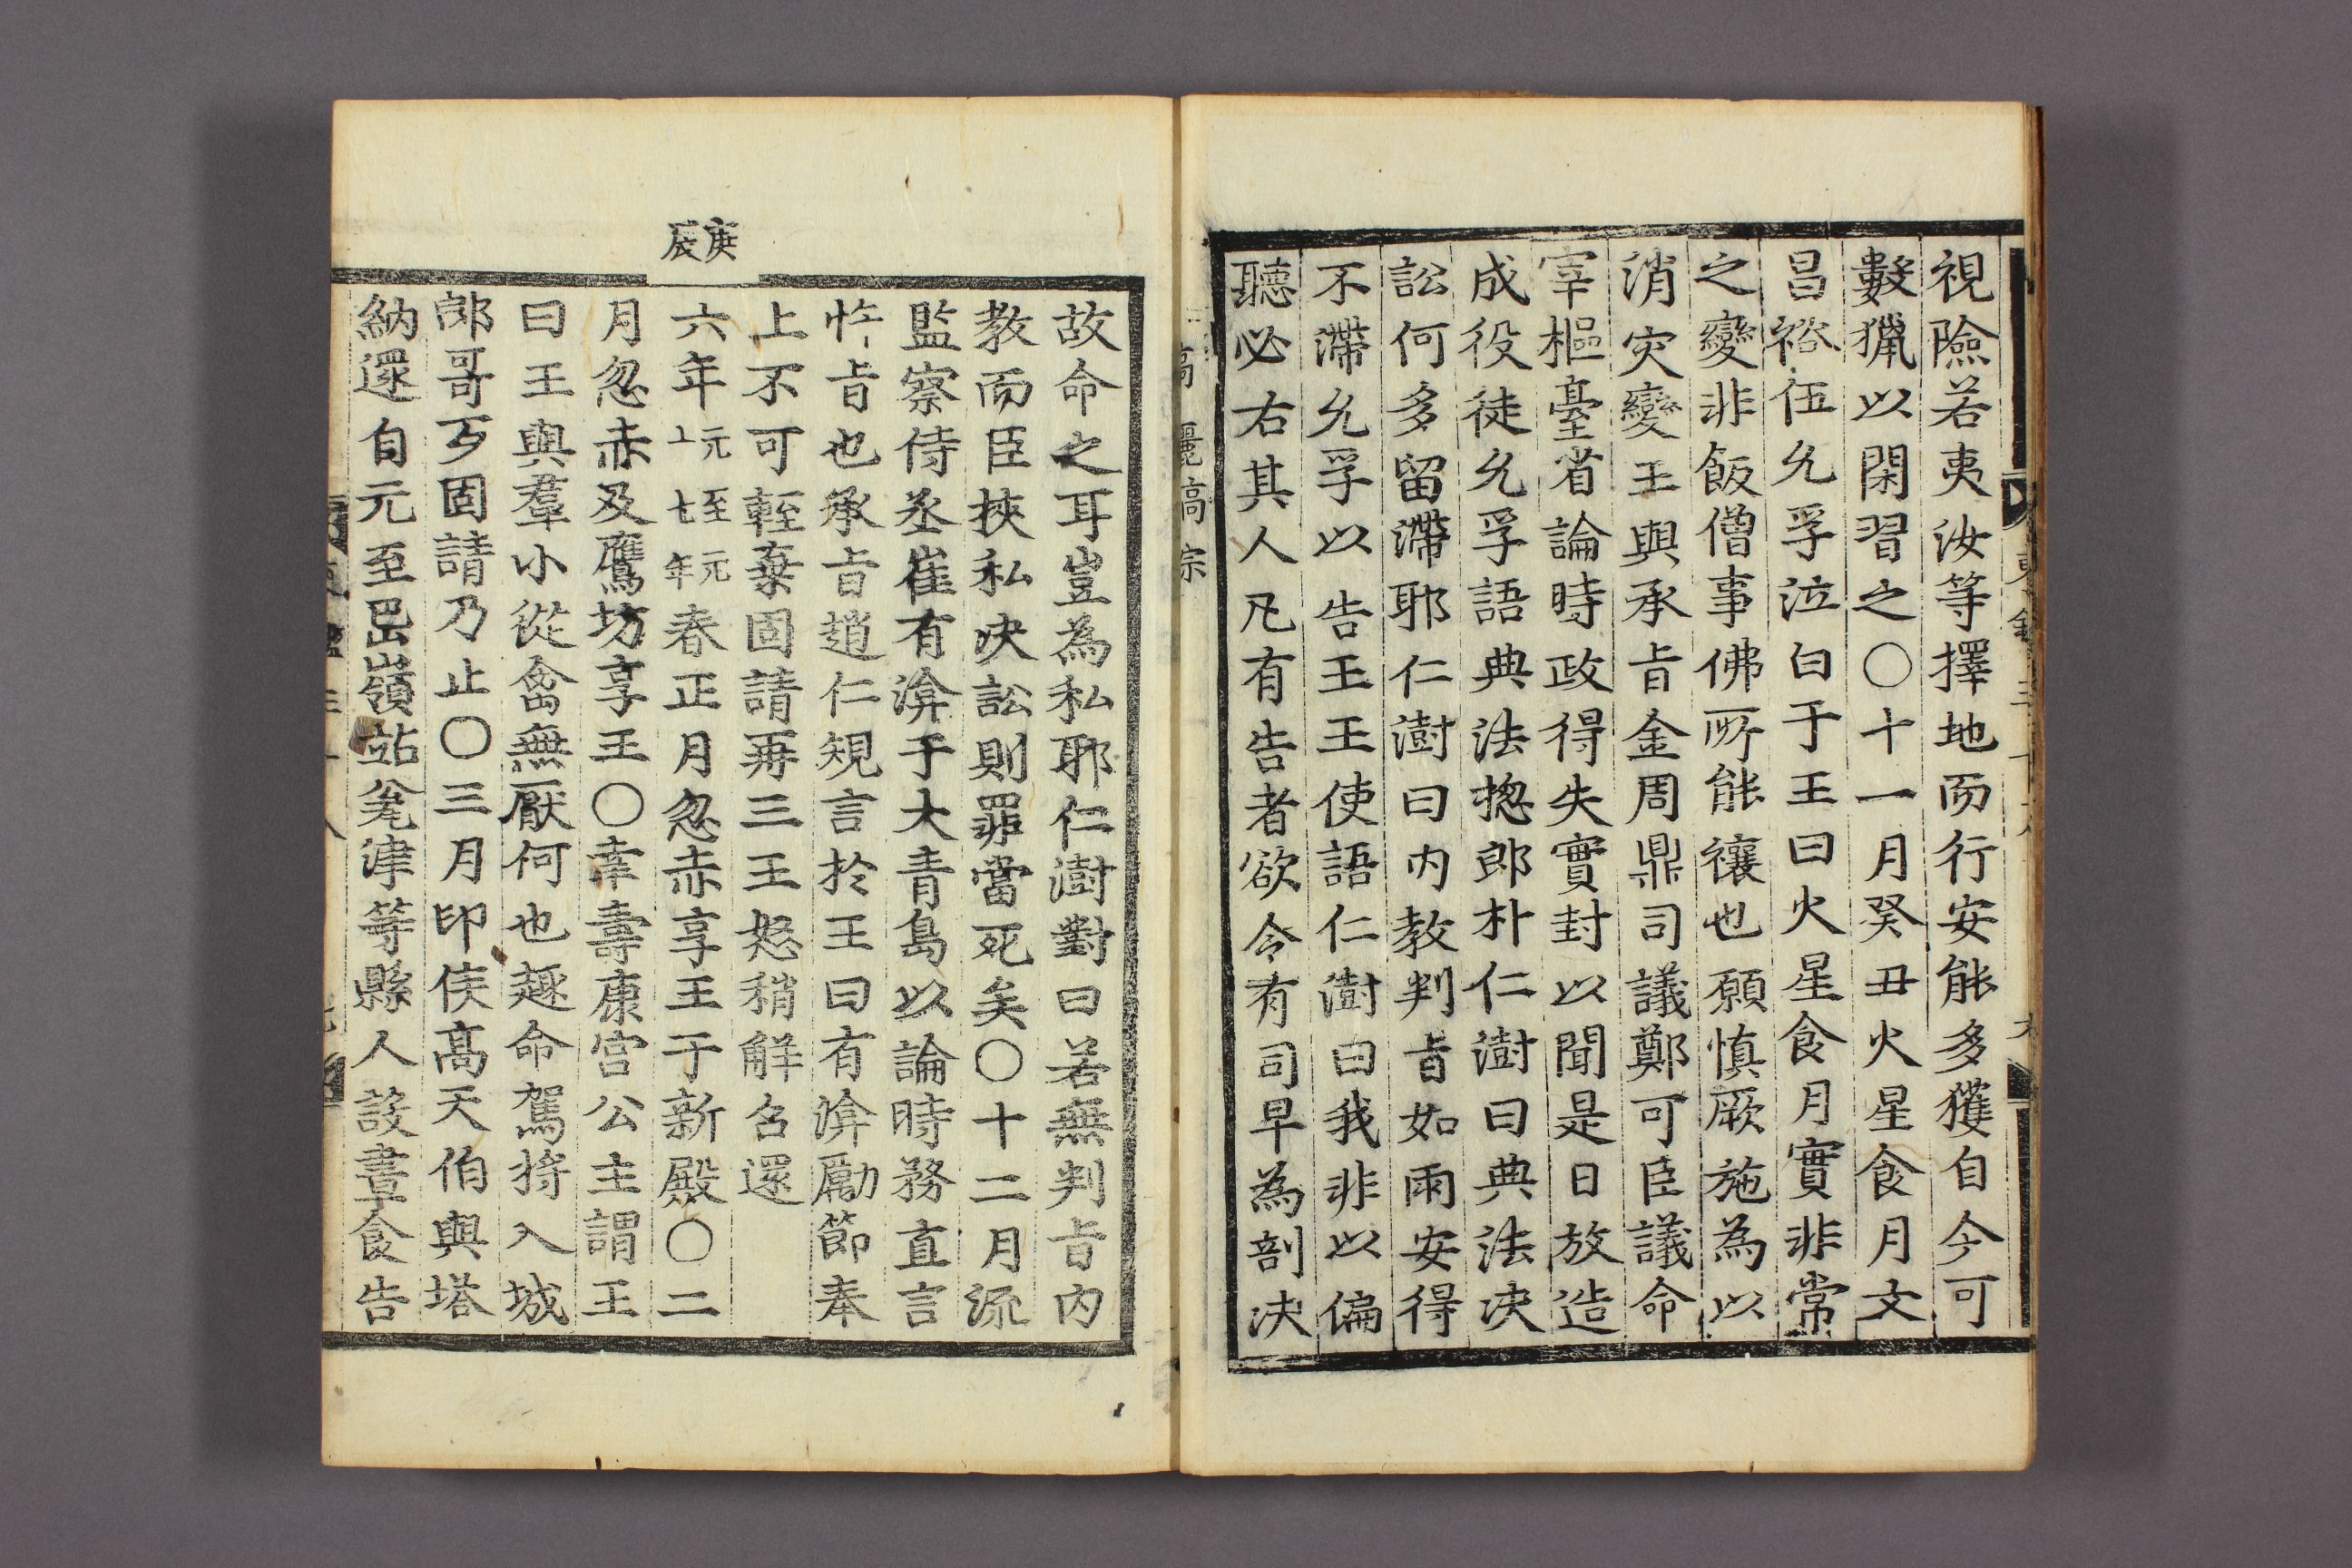 視險若夷汝等擇地而行安能多獲自今可
數獵以閑習之〇十一月癸丑火星食月文
昌裕伍允孚泣白于王曰火星食月實非常
之變非飯僧事佛所能禳也願愼厥施為以
消灾變王與承旨金周鼎司議鄭可臣議命
宰樞臺省論時政得失實封以聞是日放造
成役徒允孚語典法摠郎朴仁澍曰典法决
訟何多留滯耶仁澍曰内教判旨如雨安得
不滯允孚以告王王使語仁澍曰我非以偏
聽必右其人凡有告者欲令有司早為剖决
高麗高宗
故命之耳豈為私耶仁澍對曰若無判旨内
教而臣挾私决訟則罪當死矣〇十二月流
監察侍丞崔有渰于大青島以論時務直言
忤旨也承旨趙仁規言於王曰有渰勵節奉
上不可輕棄固請再三王怒稍解召還
庚辰
六年元至元十七年春正月忽赤享王于新殿〇二
月忽赤及鷹坊享王〇幸壽康宮公主謂王
曰王與羣小從禽無厭何也趣命駕將入城
郎哥歹固請乃止〇三月印侯高天伯與塔
納還自元至岊嶺站瓮津等縣人設晝食告